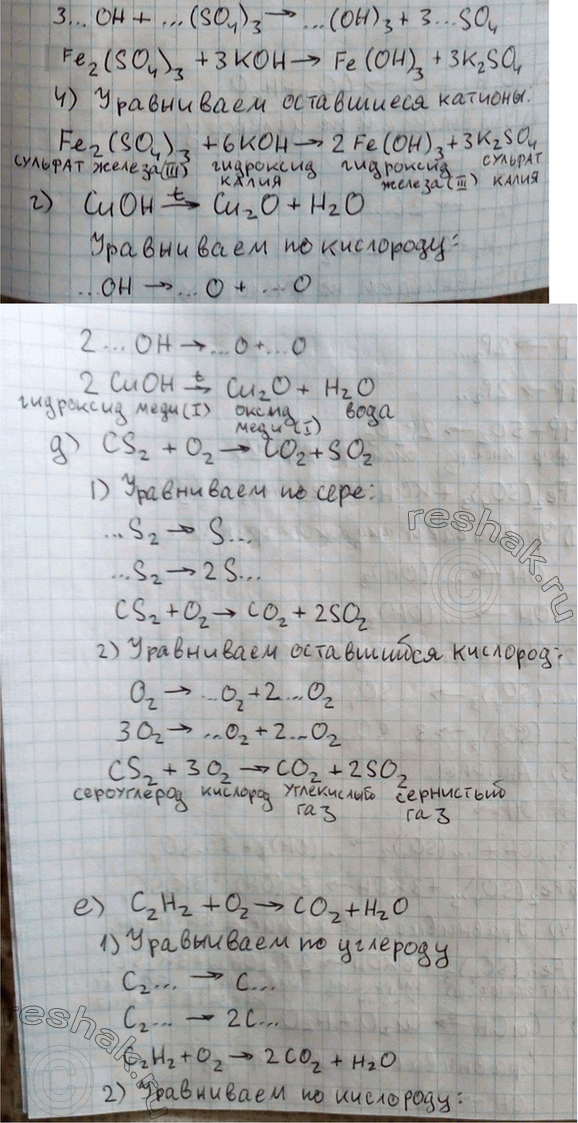 3...OH + ...(SO₄)₃ → ...(OH)₃ + 3...SO₄
Fe₂(SO₄)₃ + 3KOH → Fe(OH)₃ + 3K₂SO₄
4) Уравниваем оставшиеся катионы:
Fe₂(SO₄)₃ + 6KOH → 2Fe(OH)₃ + 3K₂SO₄
сульфат железа(III) гидроксид калия гидроксид железа(III) сульфат калия
г) CuOH →t Cu₂O + H₂O
Уравниваем по кислороду:
...OH → ...O + ...O
2...OH → ...O + ...O
2CuOH →t Cu₂O + H₂O
гидроксид меди(I) оксид меди(I) вода
д) CS₂ + O₂ → CO₂ + SO₂
1) Уравниваем по сере:
...S₂ → S...
...S₂ → 2S...
CS₂ + O₂ → CO₂ + 2SO₂
2) Уравниваем оставшийся кислород:
O₂ → ...O₂ + 2...O₂
3O₂ → ...O₂ + 2...O₂
CS₂ + 3O₂ → CO₂ + 2SO₂
сероуглерод кислород углекислый газ сернистый газ
е) C₂H₂ + O₂ → CO₂ + H₂O
1) Уравниваем по углероду
C₂... → C...
C₂... → 2C...
C₂H₂ + O₂ → 2CO₂ + H₂O
2) Уравниваем по кислороду:
reshak.ru
reshak.ru